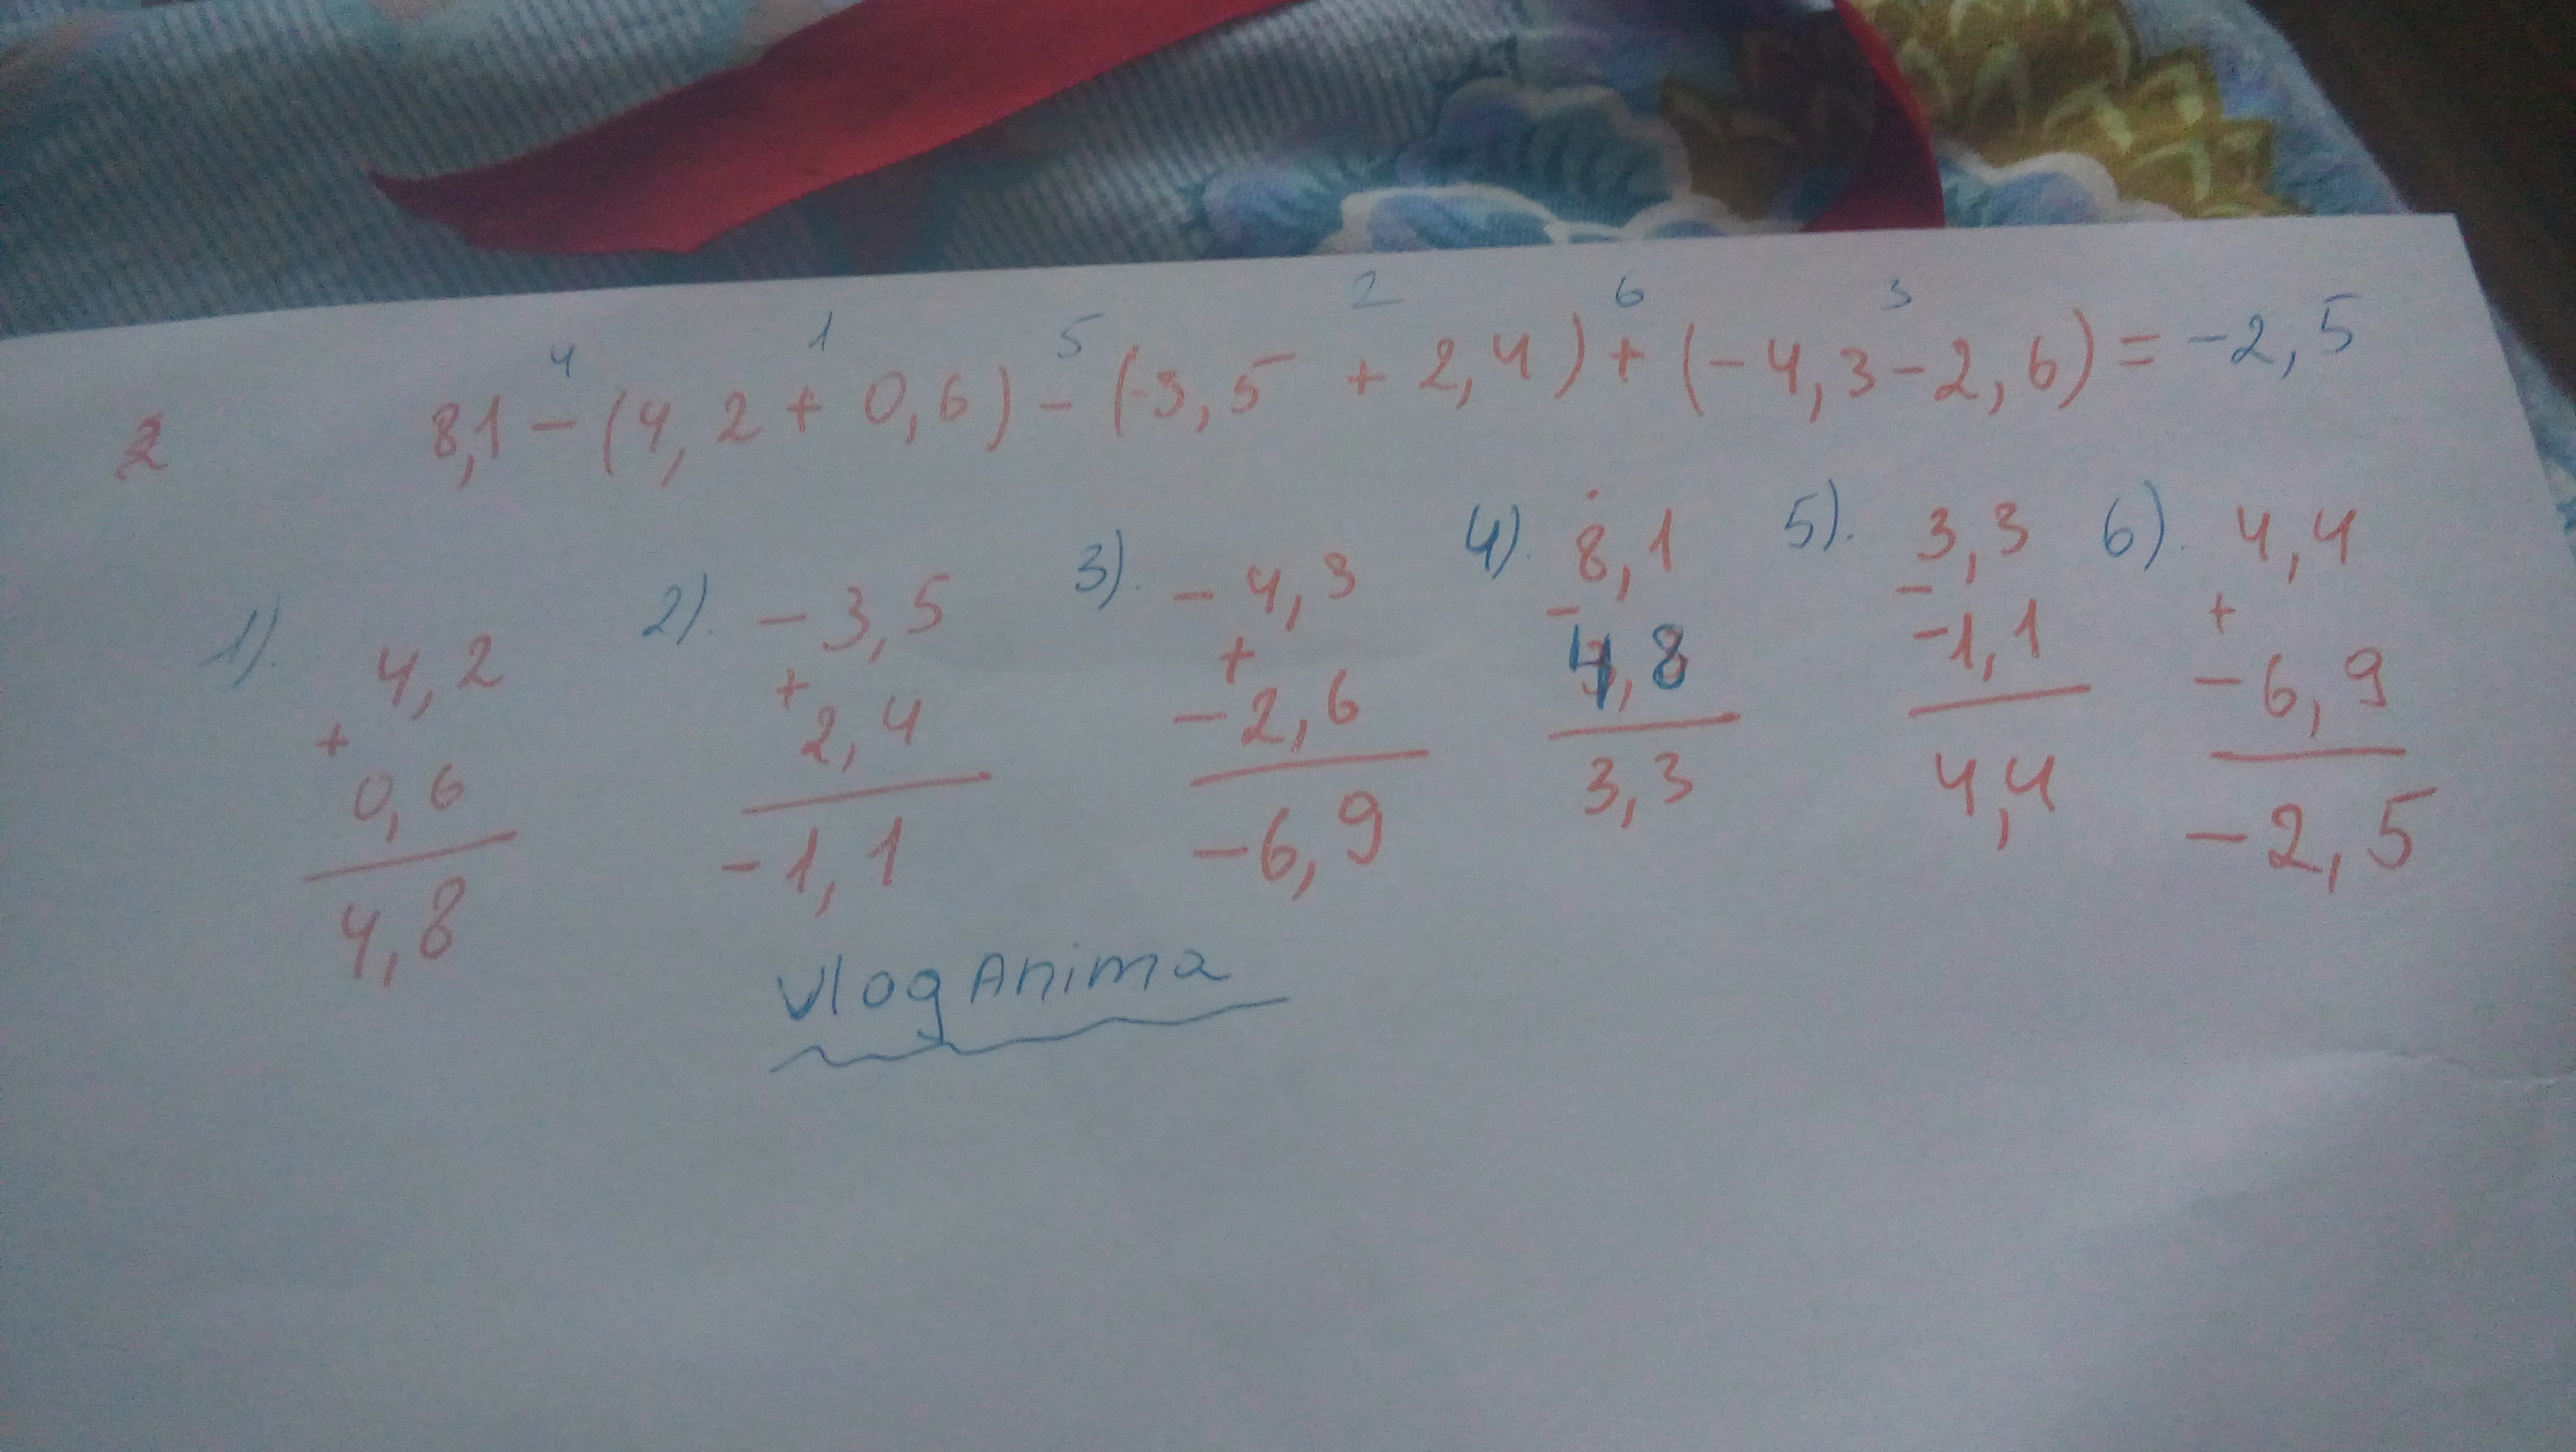 4 1 5 2 6 3
2 8,1 - (4,2 + 0,6) - (-3,5 + 2,4) + (-4,3 - 2,6) = -2,5
1). 2). 3). 4). 5). 6).
4,2 -3,5 -4,3 8,1 3,3 4,4
+ + + - - +
0,6 2,4 -2,6 4,8 -1,1 -6,9
4,8 -1,1 -6,9 3,3 4,4 -2,5
Vlog Anima